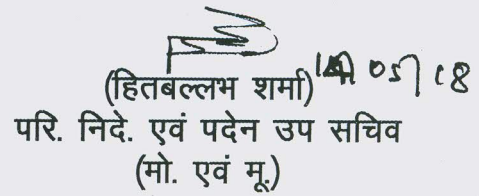 (हितबल्लभ शर्मा) 05/18
परि. निदे. एवं पदेन उप सचिव
(मो. एवं मू.)